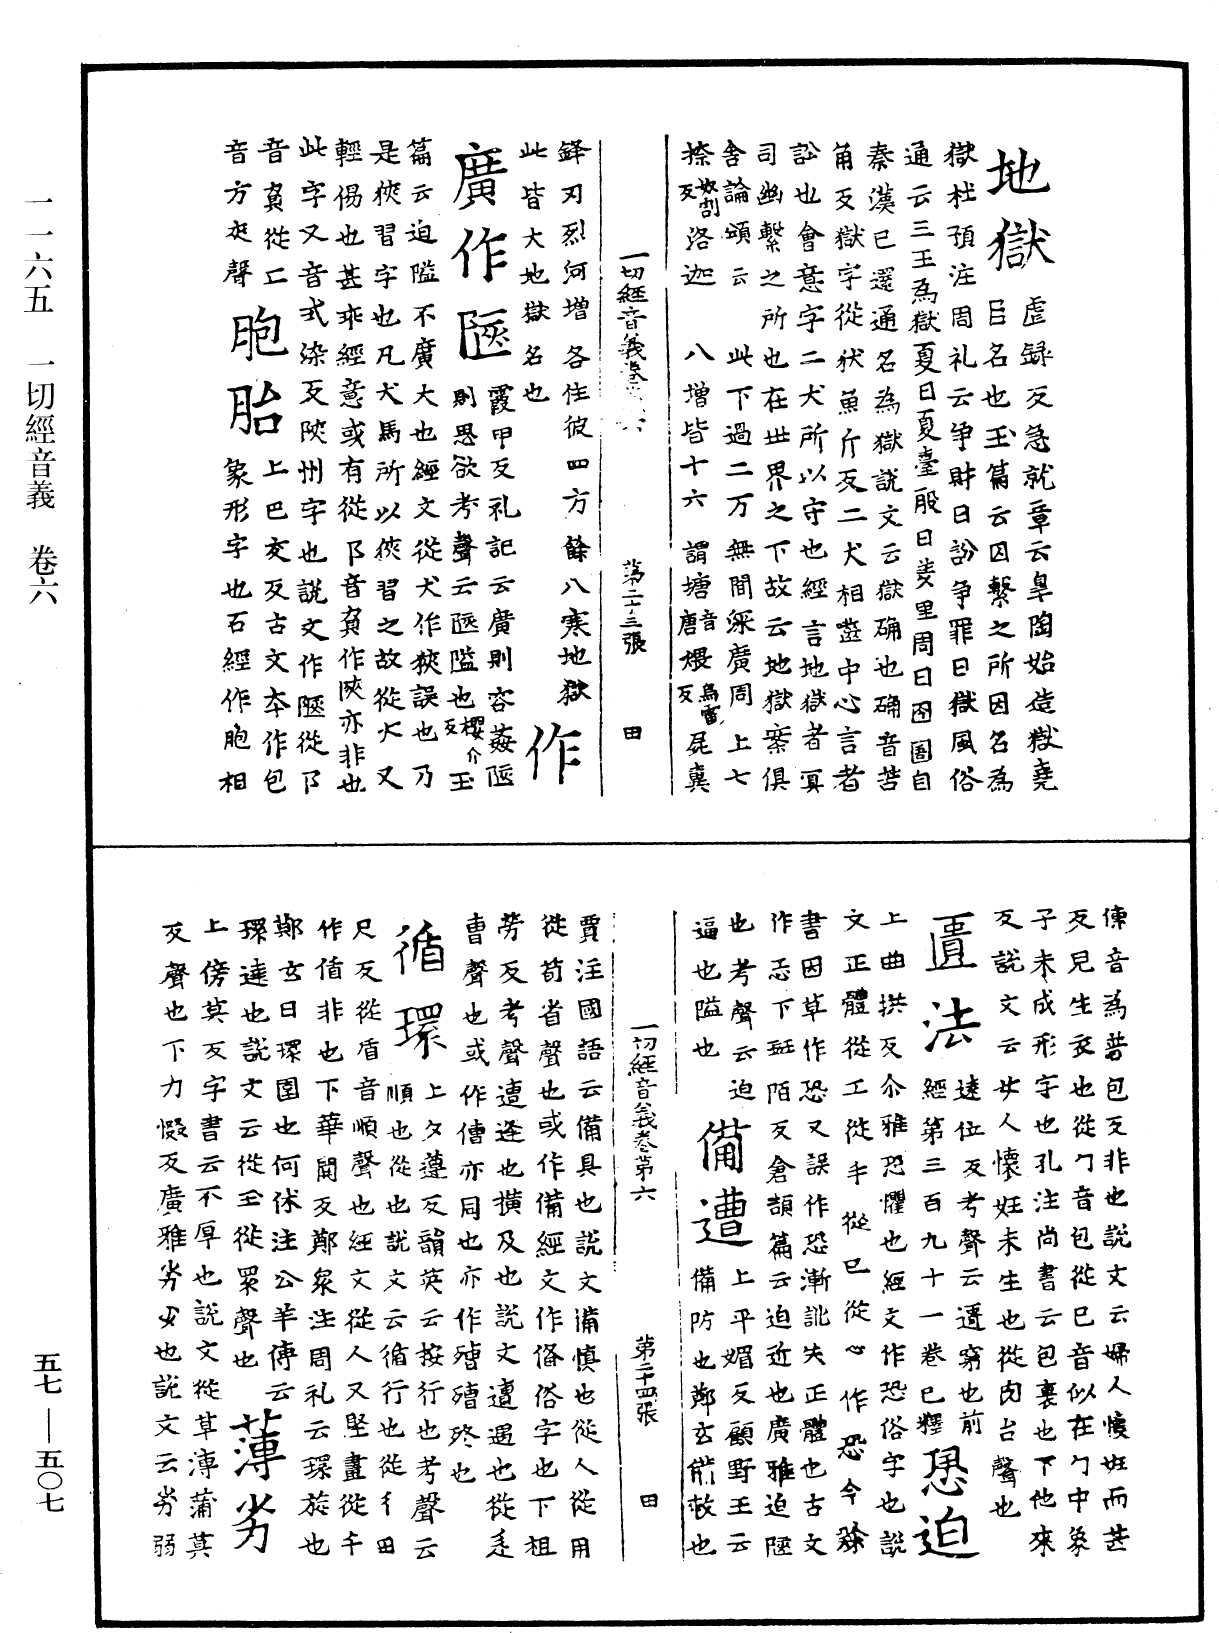 地獄 虛録反急就章云皐陶始造獄堯
臣名也玉篇云囚繫之所因名為
獄杜預注周礼云爭財曰訟爭罪曰獄風俗
通云三王為獄夏曰夏臺殷曰羑里周曰囹圄自
秦漢已還通名為獄説文云獄确也确音苦
角反獄字從㹜魚斤反二犬相齧中心言者
訟也會意字二犬所以守也經言地獄者冥
司幽繫之所也在世界之下故云地獄案俱
舍論頌云 此下過二万 無間深廣周 上七
捺奴割反洛迦 八增皆十六 謂塘音唐煨烏雷反屍糞
一切經音義卷第六 第二十三張 田
鋒刃烈河增 各住彼四方 餘八寒地獄
此皆大地獄名也
作廣作陿 霞甲反礼記云廣則容姦陿
則思欲考聲云陿隘也櫻介反玉
篇云迫隘不廣大也經文從犬作狹誤也乃
是狹習字也凡犬馬所以狹習之故從犬又
輕傷也甚乖經意或有從阝音負作陜亦非也
此字又音式染反陜州字也説文作陿從阝
音負從匚
音方夾聲 胞胎 上巴交反古文本作包
象形字也石經作胞相
傳音為普包反非也説文云婦人懷妊而甚
反兒生衣也從勹音包從巳音似在勹中象
子未成形字也孔注尚書云包裹也下他來
反説文云女人懷妊未生也從肉台聲也
匱法 逵位反考聲云匱窮也前
經第三百九十一卷已釋 恐迫
上曲拱反尒雅恐懼也經文作恐俗字也説
文正體從工從手 從巳從心 作恐今隸
書因草作恐又誤作恐漸訛失正體也古文
作忎下斑陌反倉頡篇云迫近也廣雅迫陿
也考聲云迫
逼也隘也 備遭 上平媚反顧野王云
備防也鄭玄前敕也
一切經音義卷第六 第二十四張 田
賈注國語云備具也説文備慎也從人從用
從苟省聲也或作備經文作俻俗字也下祖
勞反考聲遭逢也横及也説文遭遇也從辵
曹聲也或作傮亦同也亦作殰殰終也
循環 上夕遵反韻英云按行也考聲云
順也從也説文云循行也從彳田
尺反從盾音順聲也經文從人又竪畫從千
作偱非也下華關反鄭衆注周礼云環旋也
鄭玄曰環圍也何休注公羊傳云
環遶也説文云從玉從睘聲也 薄劣
上傍莫反字書云不厚也説文從草溥蒲莫
反聲也下力惙反廣雅劣少也説文云劣弱
一一六五 一切經音義 卷六
五七—五〇七